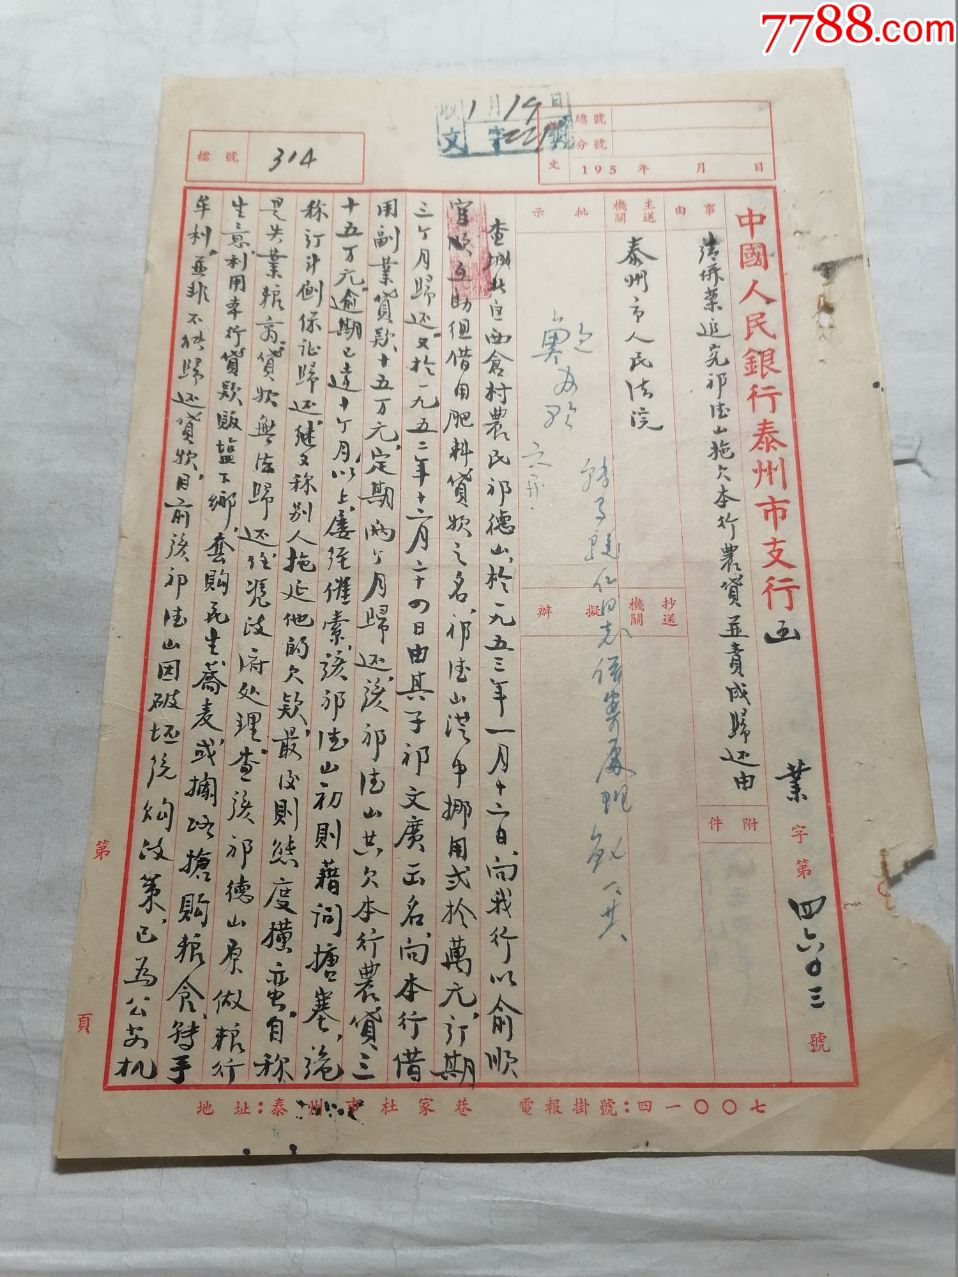 7788.com
收 1月19日
文 字
總號
分號
文 195 年 月 日
檔號 314
中國人民銀行泰州市支行函
業字第四六〇三號
事由
追究祁德山拖欠本行農貸並責成歸还由
附件
主送機關
泰州市人民法院
抄送機關
批示
擬辦
查城北区西倉村農民祁德山,於一九五三年一月十二日,向我行以俞順
官順互助組借用肥料貸款之名,祁德山從中挪用弍拾萬元,訂期
三个月歸还。又於一九五二年十二月二十四日由其子祁文廣出名,向本行借
用副業貸款十五万元,定期两个月歸还,該祁德山共欠本行農貸三
十五万元,逾期已達十个月以上,屢經催索,該祁德山初則藉词搪塞,詭
称訂計劃保证歸还,继又称别人拖延他的欠款,最后則態度橫蛮,自称
是失業粮商,貸款無法歸还,任凭政府处理。查該祁德山原做粮行
生意,利用本行貸款販盐下鄉,套购花生蕎麦,或攔路搶购粮食,转手
牟利,並非不能歸还貸款,目前該祁德山因破坏統购政策,已為公安机
第 頁
地址:泰州市杜家巷 電報掛號:四一〇〇七